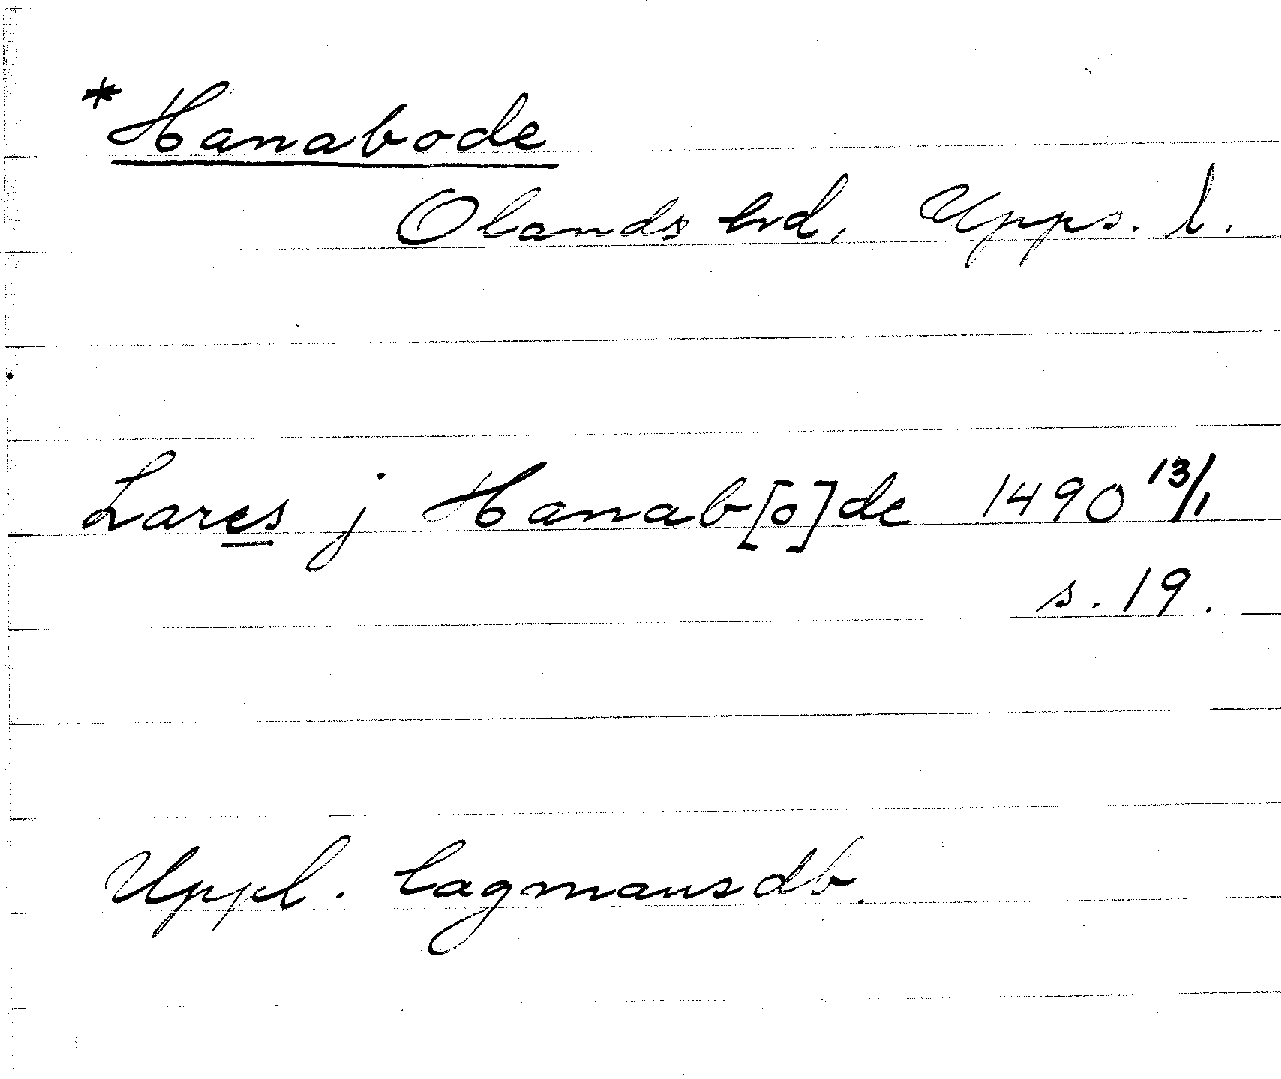 *Hanabode
Olands hrd, Upps. l.
Lares j Hanab[o]de 1490 13/1
s. 19.
Uppl. lagmansdb.